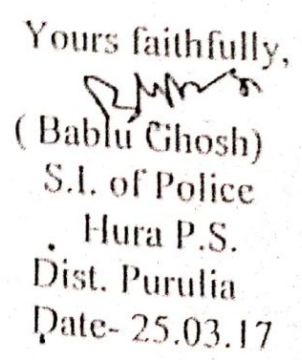 Yours faithfully,
( Bablu Ghosh)
S.I. of Police
Hura P.S.
Dist. Purulia
Date- 25.03.17